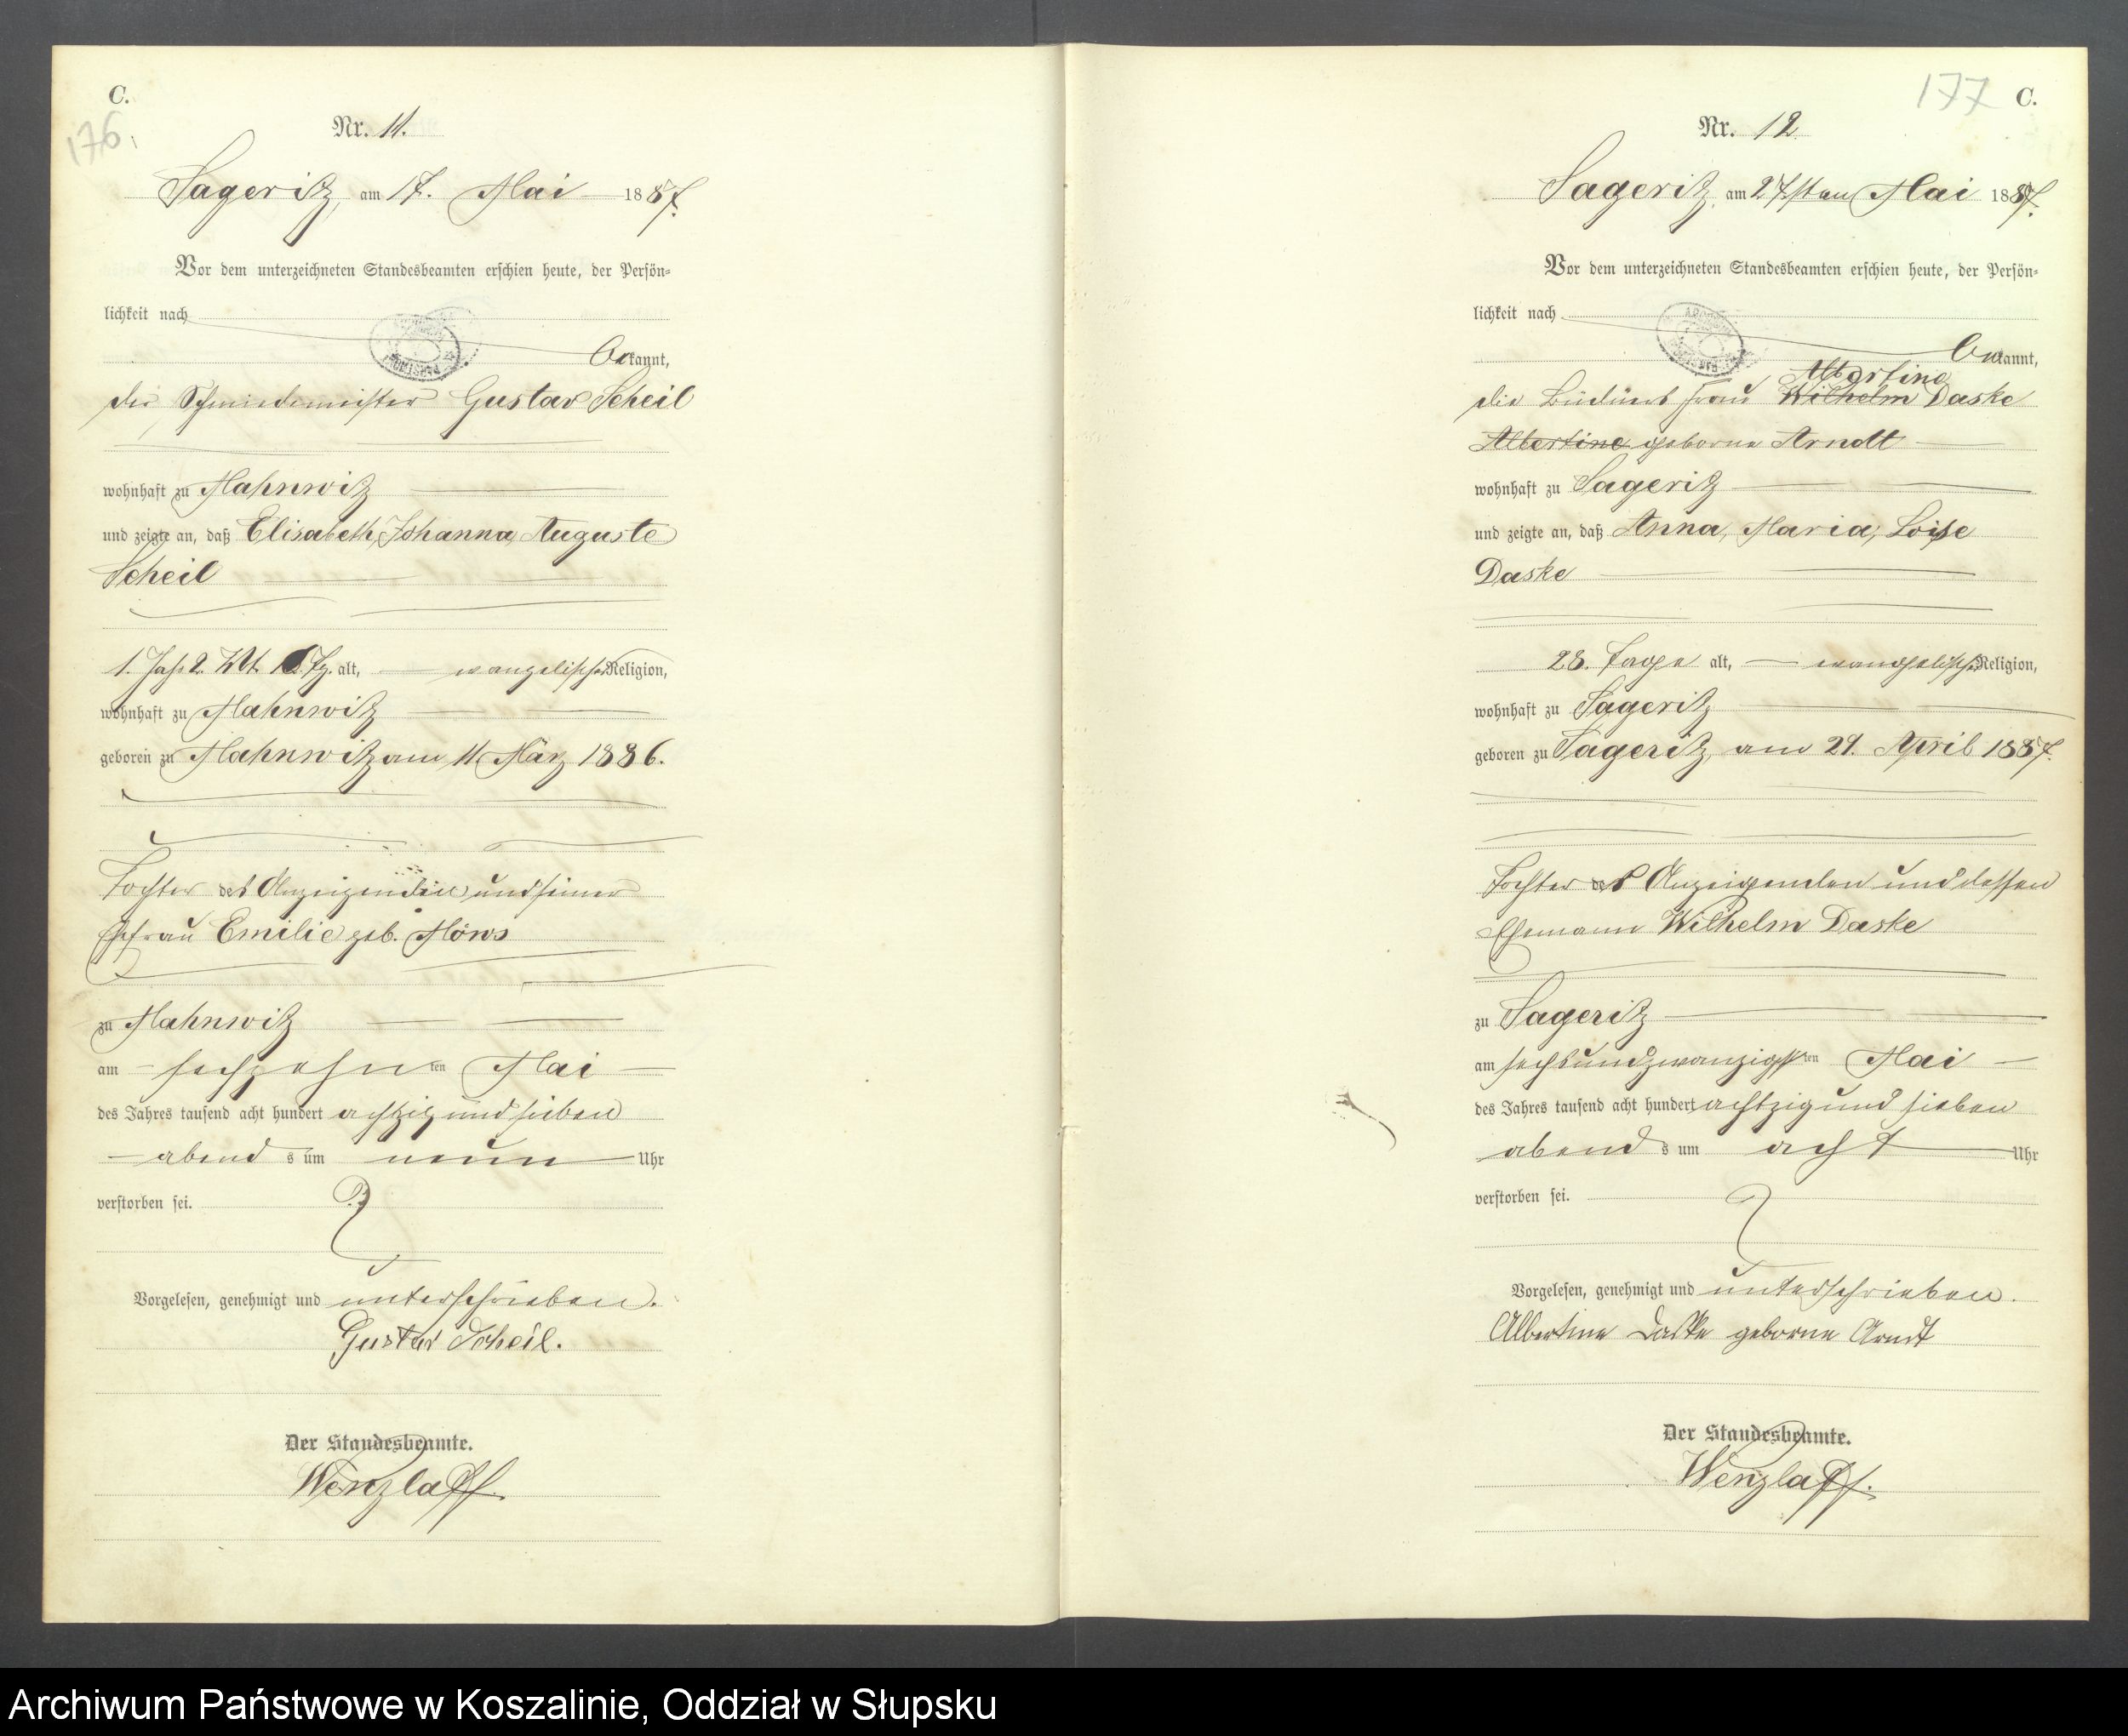 C.
176.
Nr. 11.
Sageritz, am 17. Mai 1887.
Vor dem unterzeichneten Standesbeamten erschien heute, der Persön=
lichkeit nach
bekannt,
der Schmiedemeister Gustav Scheil
wohnhaft zu Mahnwitz
und zeigte an, daß Elisabeth, Johanna, Auguste
Scheil
1. Jahr 2. Mt. Tg. alt, evangelischer Religion,
wohnhaft zu Mahnwitz
geboren zu Mahnwitz am 11 März 1886.
Tochter des Anzeigenden und seiner
Ehefrau Emilie geb. Möws
zu Mahnwitz
am sechzehnten Mai
des Jahres tausend acht hundert achtzig und sieben
abends um neun Uhr
verstorben sei.
Vorgelesen, genehmigt und unterschrieben.
Gustav Scheil.
Der Standesbeamte.
Wenzlaff.
177 C.
Nr. 12
Sageritz, am 27sten Mai 1887.
Vor dem unterzeichneten Standesbeamten erschien heute, der Persön=
lichkeit nach
bekannt,
Albertine
die Büdners Frau Wilhelm Daske
Albertine geborne Arndt
wohnhaft zu Sageritz
und zeigte an, daß Anna, Maria, Loise
Daske
28. Tage alt, evangelischer Religion,
wohnhaft zu Sageritz
geboren zu Sageritz, am 29. April 1887.
Tochter der Anzeigenden und dessen
Ehemann Wilhelm Daske
zu Sageritz
am sechsundzwanzigsten Mai
des Jahres tausend acht hundert achtzig und sieben
abends um acht Uhr
verstorben sei.
Vorgelesen, genehmigt und unterschrieben.
Albertine Daske geborne Arndt
Der Standesbeamte.
Wenzlaff.
Archiwum Państwowe w Koszalinie, Oddział w Słupsku